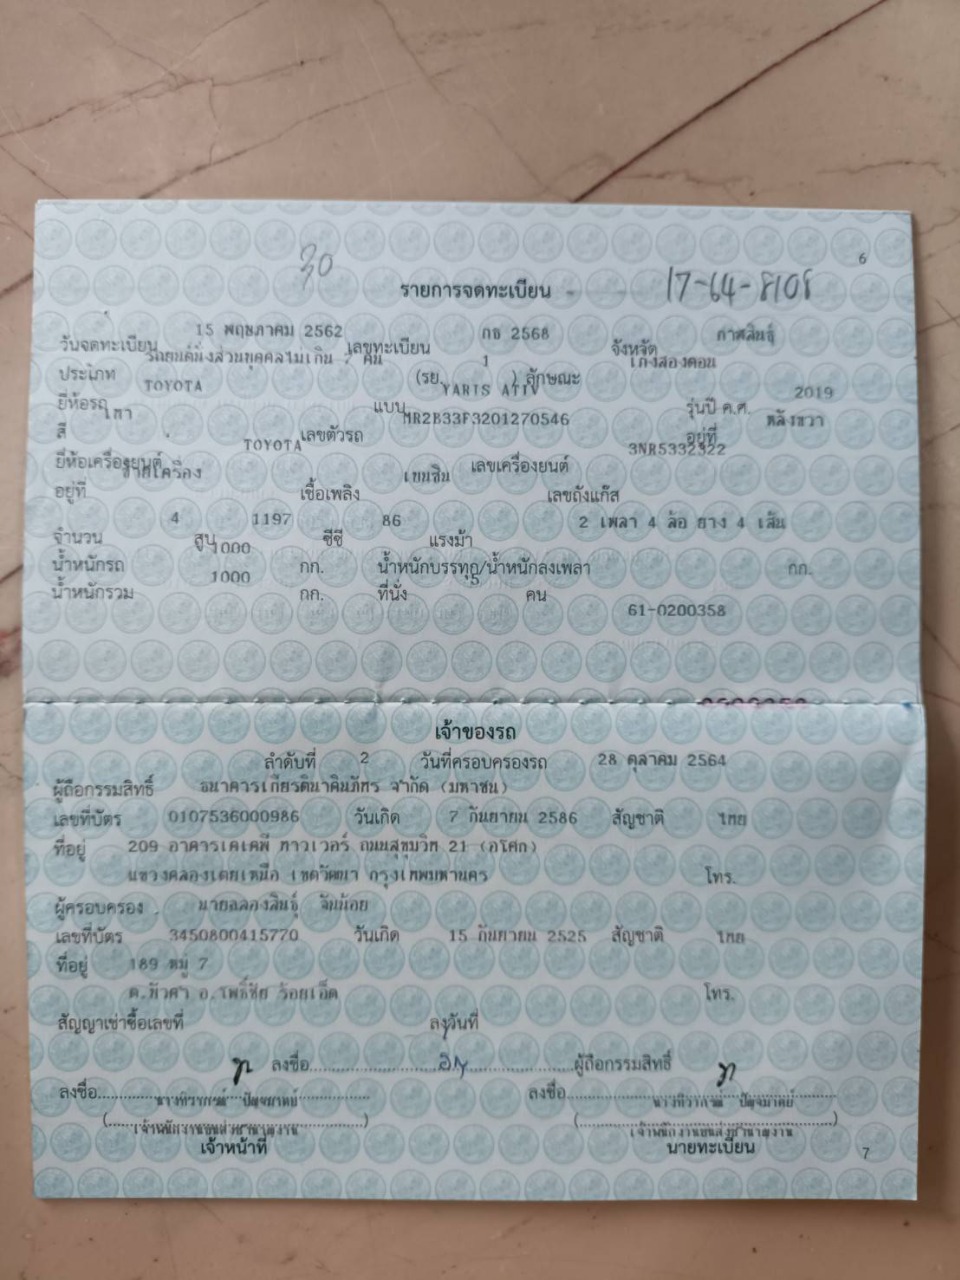 6
30
รายการจดทะเบียน 17-64-8108
วันจดทะเบียน 15 พฤษภาคม 2562 เลขทะเบียน กธ 2568 จังหวัด กาฬสินธุ์
ประเภท รถยนต์นั่งส่วนบุคคลไม่เกิน 7 คน (รย. 1 ) ลักษณะ เก๋งสองตอน
ยี่ห้อรถ TOYOTA แบบ YARIS ATIV รุ่นปี ค.ศ. 2019
สี เทา เลขตัวรถ MR2B33F3201270546 อยู่ที่ หลังขวา
ยี่ห้อเครื่องยนต์ TOYOTA เลขเครื่องยนต์ 3NR5332322
อยู่ที่ ซ้ายเครื่อง เชื้อเพลิง เบนซิน เลขถังแก๊ส
จำนวน 4 สูบ 1197 ซีซี 86 แรงม้า 2 เพลา 4 ล้อ ยาง 4 เส้น
น้ำหนักรถ 1000 กก. น้ำหนักบรรทุก/น้ำหนักลงเพลา กก.
น้ำหนักรวม 1000 กก. ที่นั่ง 5 คน
61-0200358
เจ้าของรถ
ลำดับที่ 2 วันที่ครอบครองรถ 28 ตุลาคม 2564
ผู้ถือกรรมสิทธิ์ ธนาคารเกียรตินาคินภัทร จำกัด (มหาชน)
เลขที่บัตร 0107536000986 วันเกิด 7 กันยายน 2586 สัญชาติ ไทย
ที่อยู่ 209 อาคารเคเคพี ทาวเวอร์ ถนนสุขุมวิท 21 (อโศก)
แขวงคลองเตยเหนือ เขตวัฒนา กรุงเทพมหานคร โทร.
ผู้ครอบครอง นายฉลองสินธุ์ จันน้อย
เลขที่บัตร 3450800415770 วันเกิด 15 กันยายน 2525 สัญชาติ ไทย
ที่อยู่ 189 หมู่ 7
ต. อ.โพธิ์ชัย ร้อยเอ็ด โทร.
สัญญาเช่าซื้อเลขที่ ลงวันที่
ลงชื่อ ผู้ถือกรรมสิทธิ์
ลงชื่อ ลงชื่อ
(เจ้าพนักงานขนส่งชำนาญงาน) (เจ้าพนักงานขนส่งชำนาญงาน)
เจ้าหน้าที่ นายทะเบียน
7